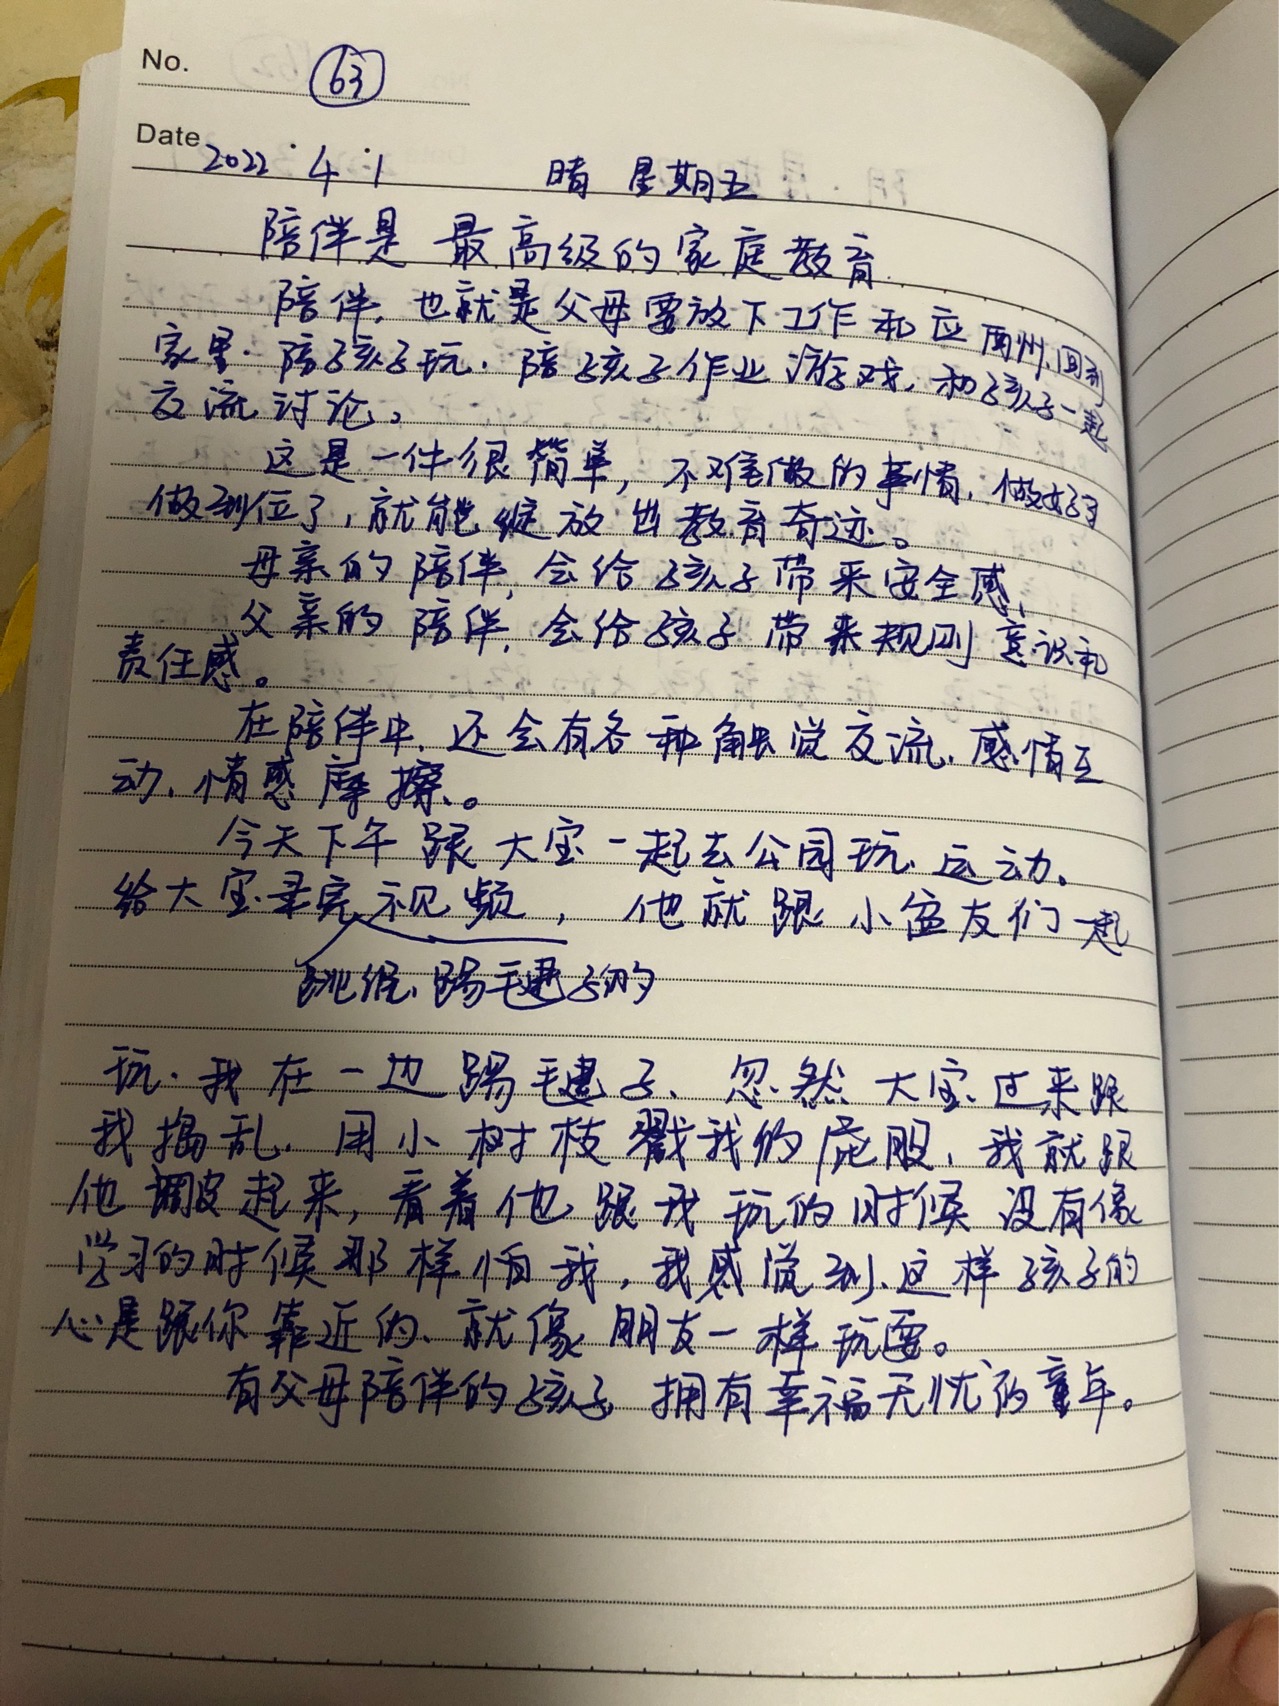 No. 63
Date 2022.4.1 晴 星期五
陪伴是最高级的家庭教育.
陪伴,也就是父母要放下工作和应酬,回到
家里.陪孩子玩.陪孩子作业游戏,和孩子一起
交流讨论。
这是一件很简单,不难做的事情,做好了
做到位了,就能绽放出教育奇迹。
母亲的陪伴,会给孩子带来安全感,
父亲的陪伴,会给孩子带来规则意识和
责任感。
在陪伴中,还会有各种触觉交流、感情互
动、情感摩擦、。
今天下午跟大宝一起去公园玩、运动、
给大宝录完视频,他就跟小盆友们一起
跳绳、踢毛毽子的
玩.我在一边踢毛毽子、忽然大宝过来跟
我捣乱,用小树枝戳我的屁股,我就跟
他调皮起来,看着他跟我玩的时候没有像
学习的时候那样怕我,我感觉到这样孩子的
心是跟你靠近的、就像朋友一样玩耍。
有父母陪伴的孩子,拥有幸福无忧的童年。